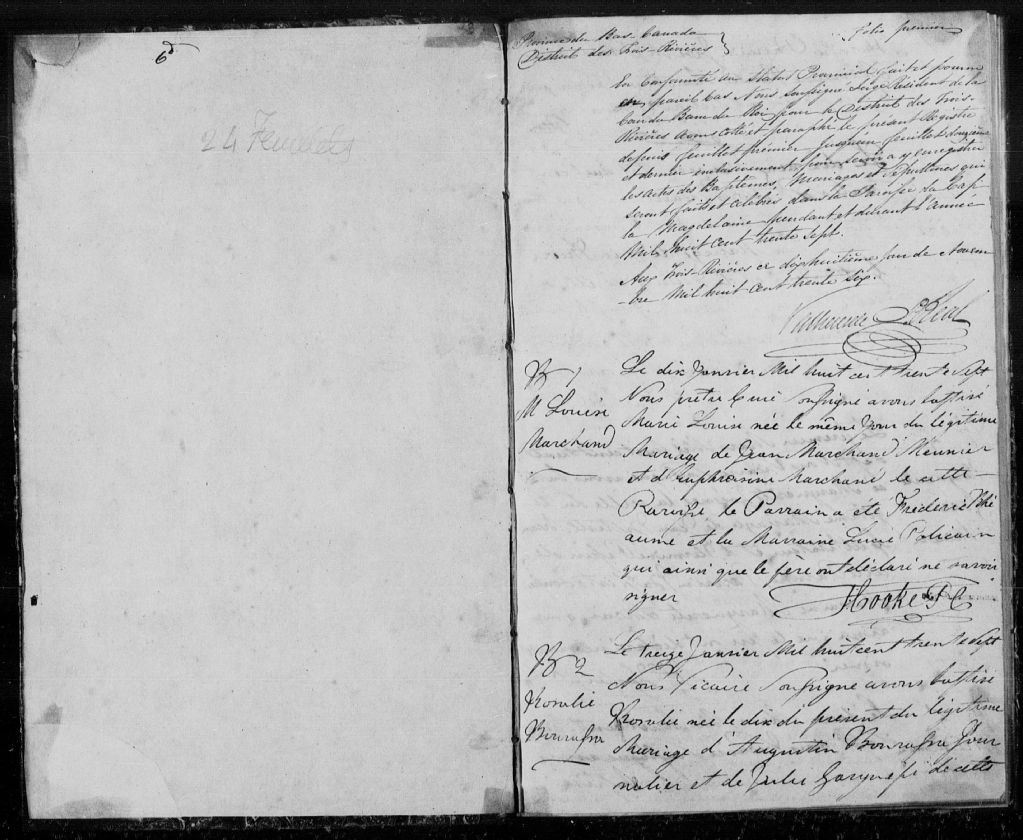 6
24 Feuillets
Province du Bas Canada
District des Trois-Rivières }
folio premier
En Conformité au Statut Provincial fait et pourvu
en pareil Cas Nous soussigné Juge Résident de la
Cour du Banc du Roi pour le District des Trois-
Rivières avons cotté et paraphé le présent Registre
depuis feuillet premier jusqu'au feuillet douzième
et dernier inclusivement, pour servir a y enregistrer
les actes des Baptêmes, Mariages et Sépultures qui
seront faits et célébrés dans la Paroisse du Cap
la Magdelaine pendant et durant l'Année
Mil huit cent trente sept.
Aux Trois-Rivières ce dix huitième jour de Novem
-bre Mil huit cent trente six.
B 1
M Louise
Marchand
Le dix Janvier Mil huit cent trente sept
Nous prêtre Curé soussigné avons baptisé
Marie Louise née le même jour du légitime
Mariage de Jean Marchand Meunier
et d'Euphrosine Marchand de cette
Paroisse le Parrain a été Frédéric Rhé
aume et la Marraine Lucie Policain
qui ainsi que le père ont déclaré ne savoir
signer
Hooke P C
B 2
Rosalie
Le treize Janvier Mil huit cent trente sept
Nous Vicaire soussigné avons baptisé
Rosalie née le dix du présent du légitime
Mariage d'Augustin Jour
nalier et de Julie de cette